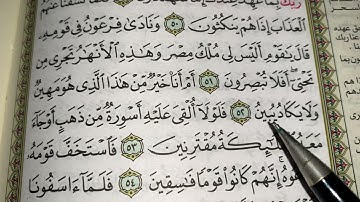 رَبُّكَ بِمَا عَهِدَ عِندَكَ
ٱلْعَذَابَ إِذَا هُمْ يَنكُثُونَ ٥٠ وَنَادَىٰ فِرْعَوْنُ فِى قَوْمِهِۦ
قَالَ يَٰقَوْمِ أَلَيْسَ لِى مُلْكُ مِصْرَ وَهَٰذِهِ ٱلْأَنْهَٰرُ تَجْرِى مِن
تَحْتِىٓ أَفَلَا تُبْصِرُونَ ٥١ أَمْ أَنَا۠ خَيْرٌ مِّنْ هَٰذَا ٱلَّذِى هُوَ مَهِينٌ
وَلَا يَكَادُ يُبِينُ ٥٢ فَلَوْلَآ أُلْقِىَ عَلَيْهِ أَسْوِرَةٌ مِّن ذَهَبٍ أَوْ جَآءَ
مَعَهُ ٱلْمَلَٰٓئِكَةُ مُقْتَرِنِينَ ٥٣ فَٱسْتَخَفَّ قَوْمَهُۥ
إِنَّهُمْ كَانُوا۟ قَوْمًا فَٰسِقِينَ ٥٤ فَلَمَّآ ءَاسَفُونَا